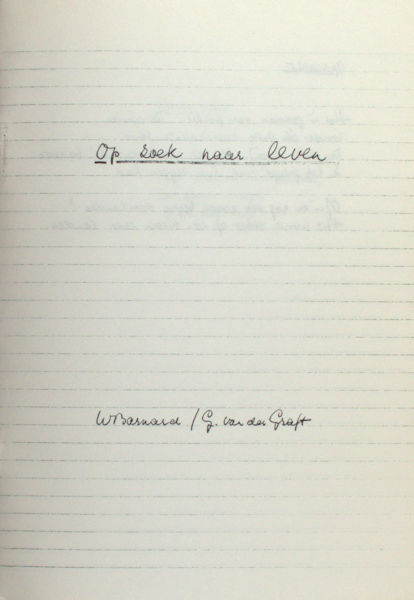 Op zoek naar leven
WBarnard / G. van der Graft